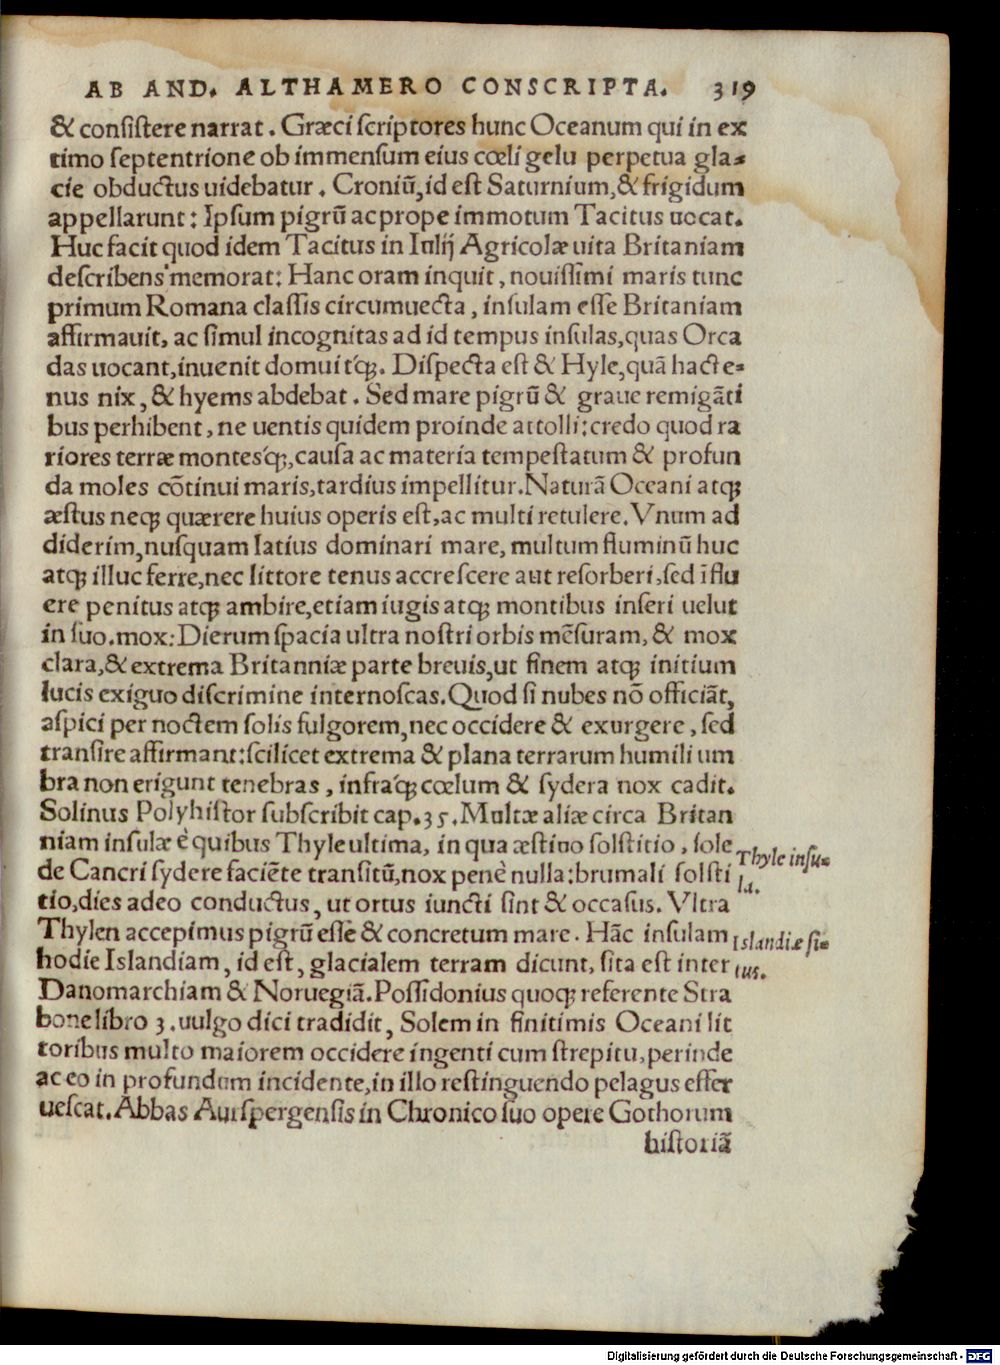 AB AND. ALTHAMERO CONSCRIPTA. 319
& consistere narrat. Græci scriptores hunc Oceanum qui in ex
timo septentrione ob immensum eius cœli gelu perpetua gla⸗
cie obductus uidebatur. Croniũ, id est Saturnium, & frigidum
appellarunt: Ipsum pigrũ ac prope immotum Tacitus uocat.
Huc facit quod idem Tacitus in Iulij Agricolæ uita Britaniam
describens memorat: Hanc oram inquit, nouissimi maris tunc
primum Romana classis circumuecta, insulam esse Britaniam
affirmauit, ac simul incognitas ad id tempus insulas, quas Orca
das uocant, inuenit domuitq́;. Dispecta est & Hyle, quã hacte⸗
nus nix, & hyems abdebat. Sed mare pigrũ & graue remigãti
bus perhibent, ne uentis quidem proinde attolli: credo quod ra
riores terræ montesq́;, causa ac materia tempestatum & profun
da moles cõtinui maris, tardius impellitur. Naturã Oceani atq;
æstus neq; quærere huius operis est, ac multi retulere. Vnum ad
diderim, nusquam latius dominari mare, multum fluminũ huc
atq; illuc ferre, nec littore tenus accrescere aut resorberi, sed ĩflu
ere penitus atq; ambire, etiam iugis atq; montibus inseri uelut
in suo. mox: Dierum spacia ultra nostri orbis mẽsuram, & mox
clara, & extrema Britanniæ parte breuis, ut finem atq; initium
lucis exiguo discrimine internoscas. Quod si nubes nõ officiãt,
aspici per noctem solis fulgorem, nec occidere & exurgere, sed
transire affirmant: scilicet extrema & plana terrarum humili um
bra non erigunt tenebras, infraq́; cœlum & sydera nox cadit.
Solinus Polyhistor subscribit cap. 35. Multæ aliæ circa Britan
niam insulæ è quibus Thyle ultima, in qua æstiuo solstitio, sole
Thyle insu⸗
la.
de Cancri sydere faciẽte transitũ, nox penè nulla: brumali solsti
tio, dies adeo conductus, ut ortus iuncti sint & occasus. Vltra
Thylen accepimus pigrũ esse & concretum mare. Hãc insulam
Islandiæ si⸗
tus.
hodie Islandiam, id est, glacialem terram dicunt, sita est inter
Danomarchiam & Noruegiã. Possidonius quoq; referente Stra
bone libro 3. uulgo dici tradidit, Solem in finitimis Oceani lit
toribus multo maiorem occidere ingenti cum strepitu, perinde
ac eo in profundum incidente, in illo restinguendo pelagus effer
uescat. Abbas Aurspergensis in Chronico suo opere Gothorum
historiã
Digitalisierung gefördert durch die Deutsche Forschungsgemeinschaft - DFG